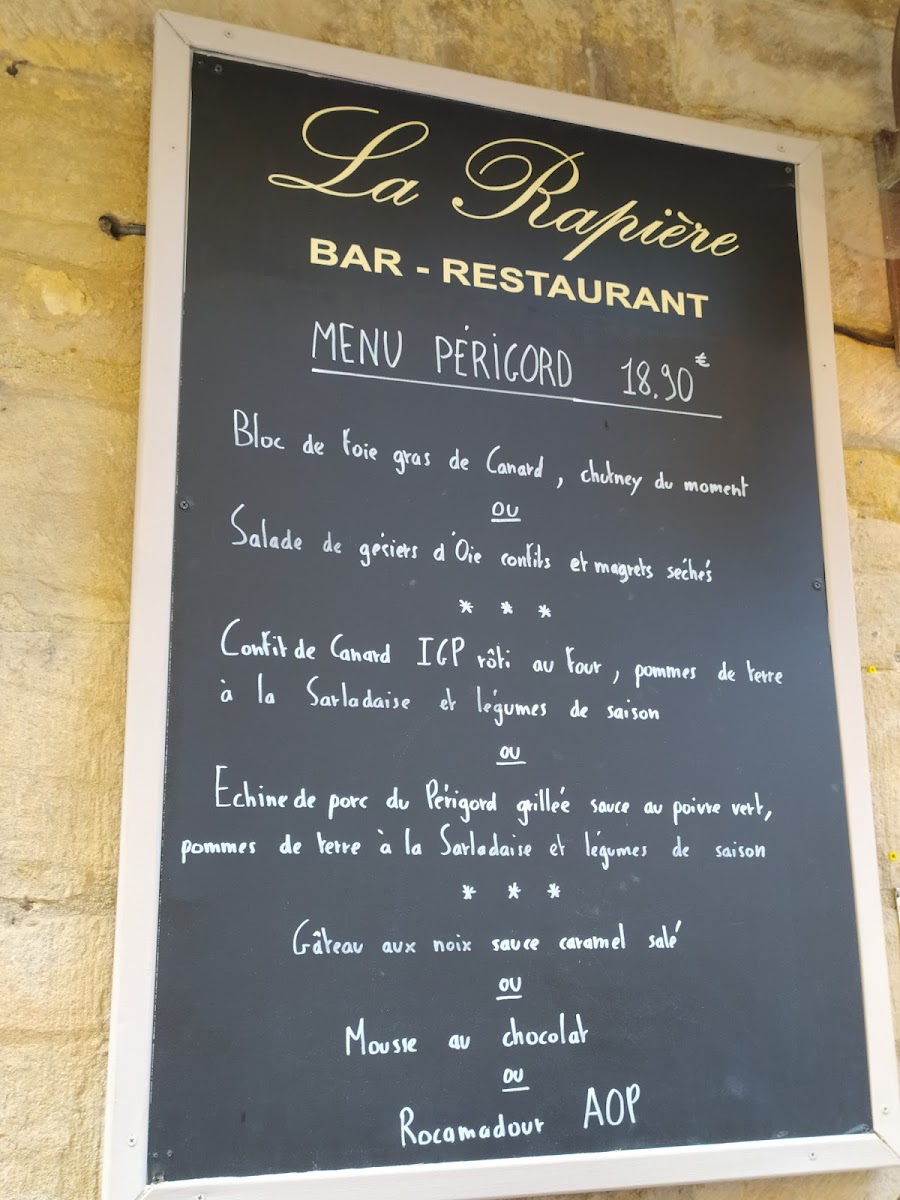 La Rapière
BAR - RESTAURANT
MENU PÉRIGORD 18.90€
Bloc de foie gras de Canard, chutney du moment
OU
Salade de gésiers d'Oie confits et magrets séchés
* * *
Confit de Canard IGP rôti au four, pommes de terre
à la Sarladaise et légumes de saison
OU
Echine de porc du Périgord grilleé sauce au poivre vert,
pommes de terre à la Sarladaise et légumes de saison
* * *
Gâteau aux noix sauce caramel salé
OU
Mousse au chocolat
OU
Rocamadour AOP